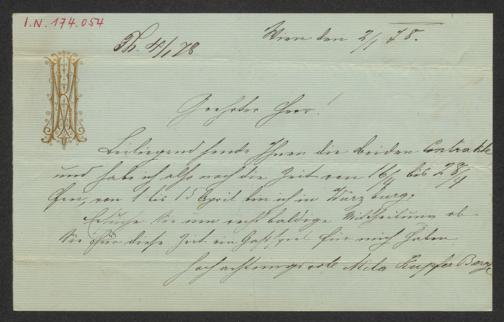 I.N. 174.054
Th. 4/1 78
Wien den 2/1 78.
Geehrter Herr!
Beiliegend sende Ihnen die beiden Contrakte
und habe ich also noch die Zeit von 16/4 bis 28/4
frei, von 1 bis 15 April bin ich in Würzburg.
Ersuche Sie um recht baldige Mittheilung ob
Sie für diese Zeit ein Gastspiel für mich haben
Hochachtungsvoll Mila Kupfer Berger